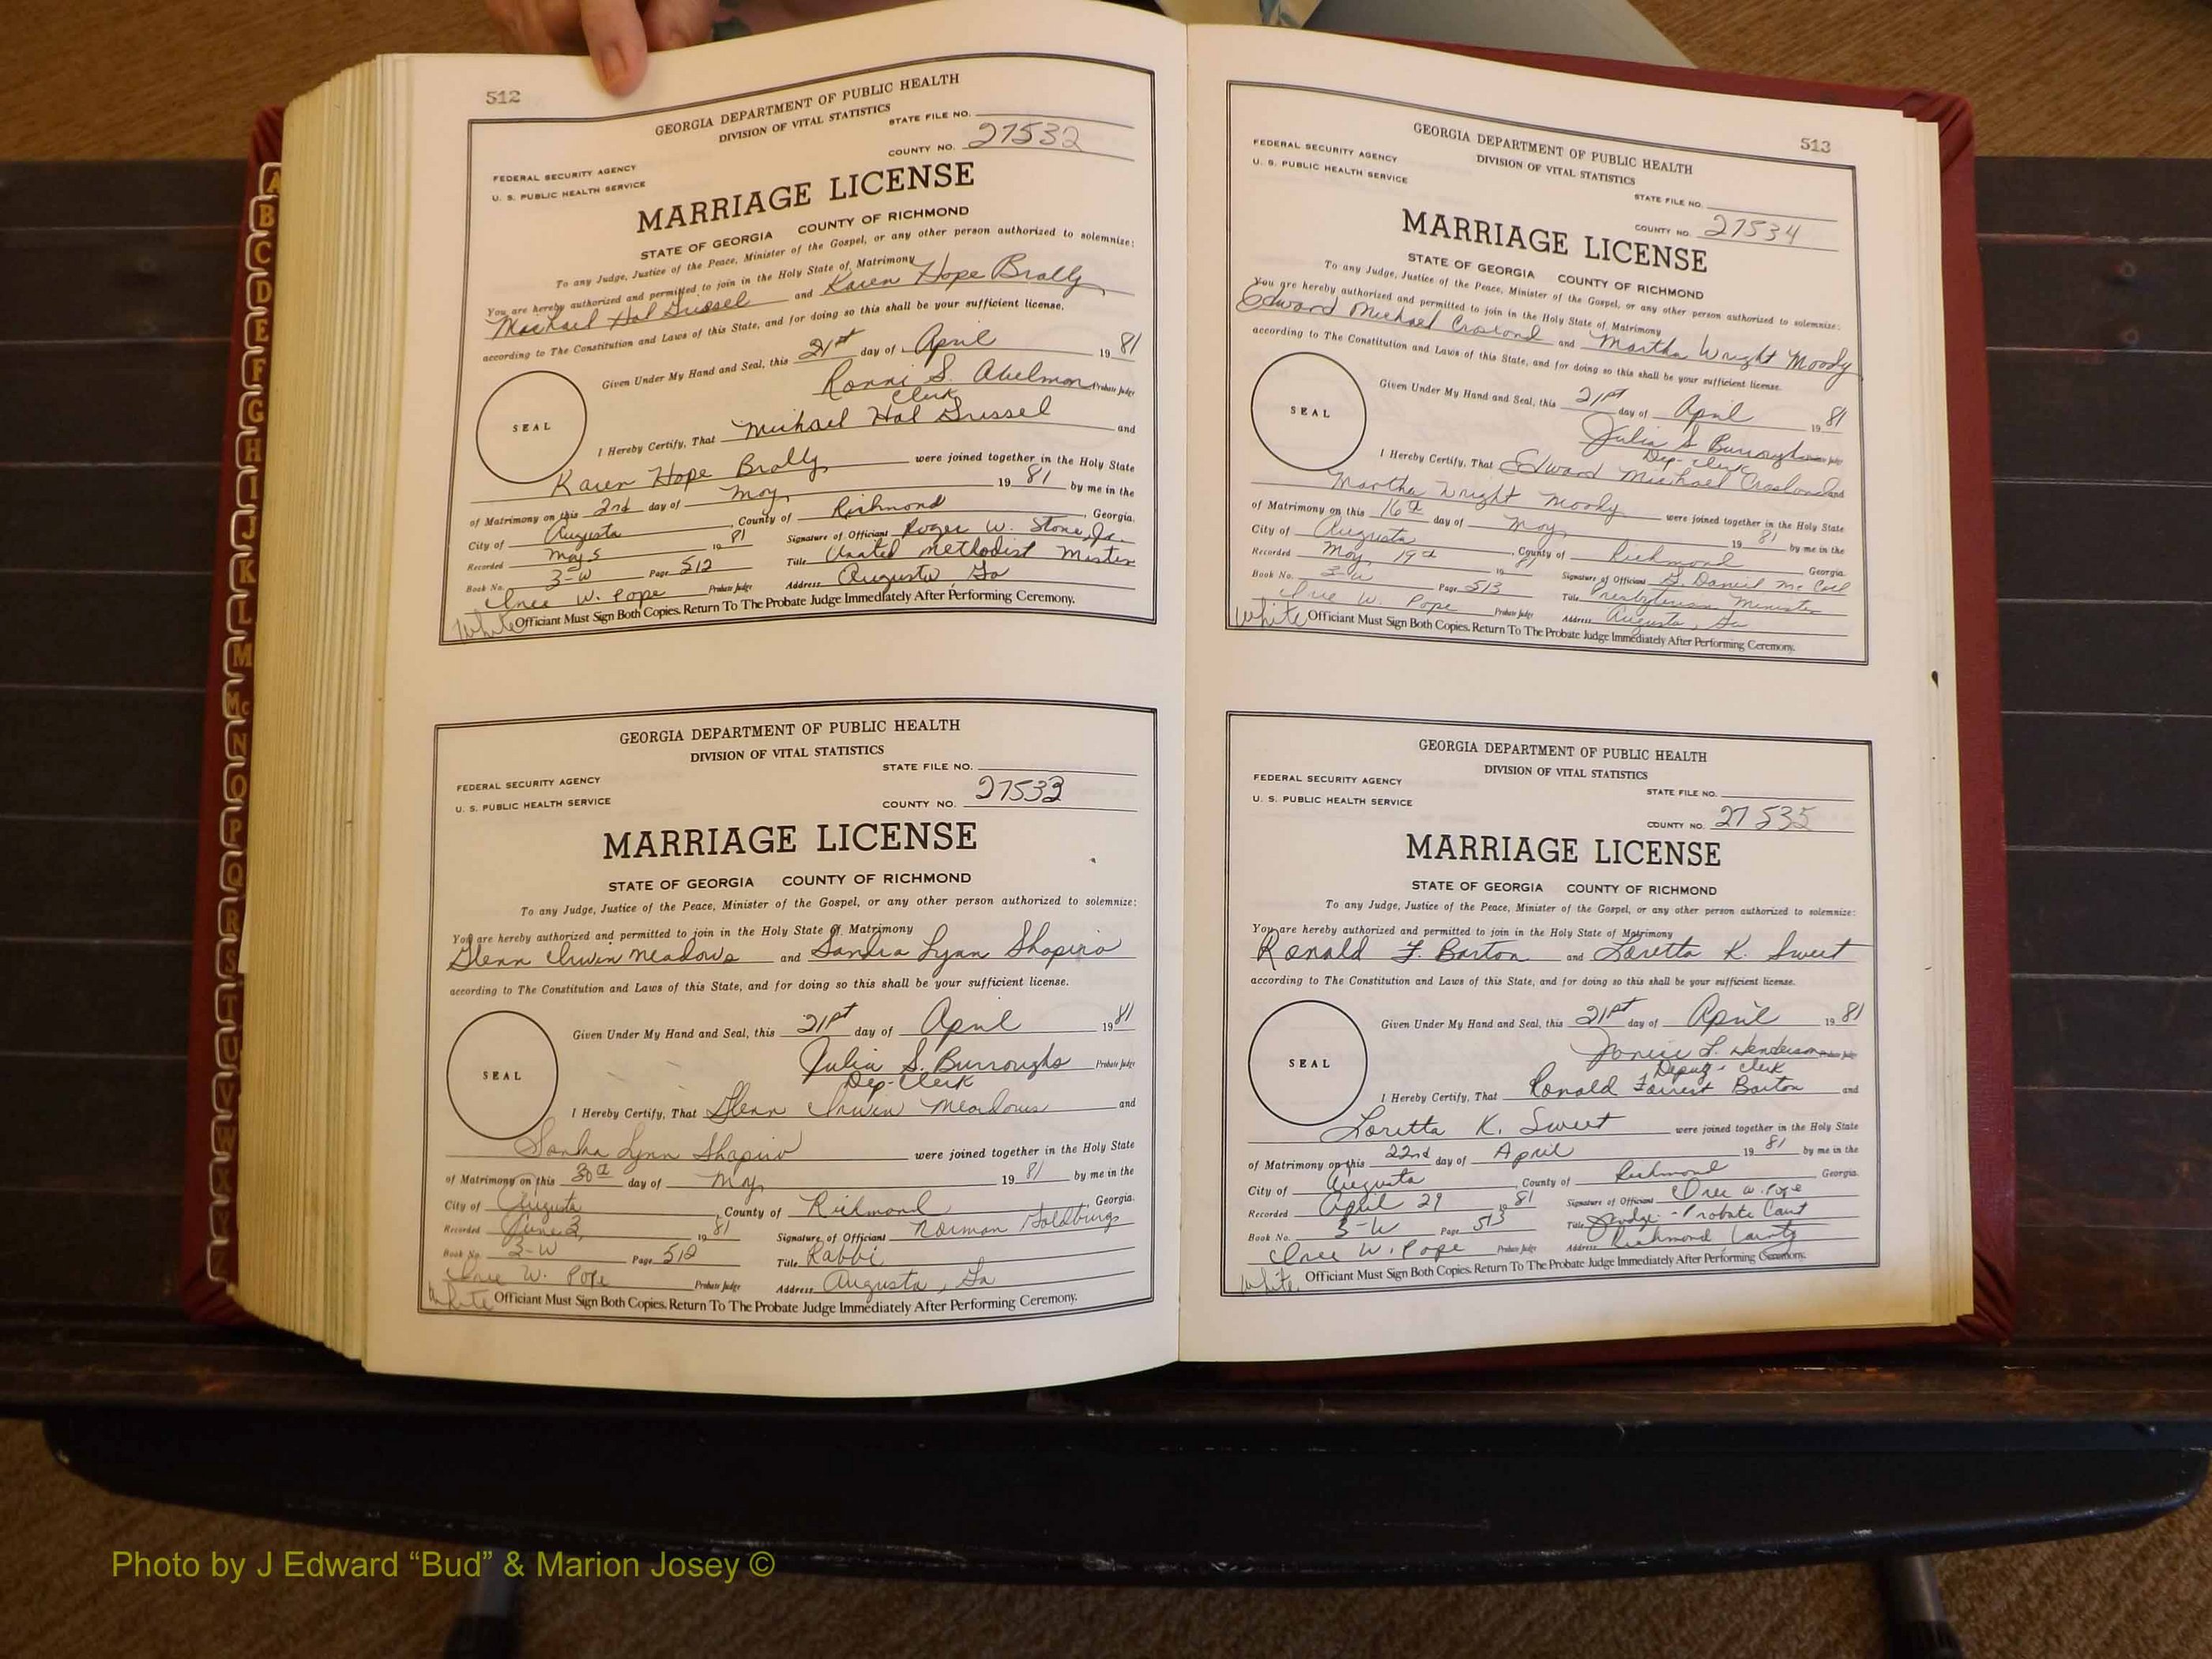 512
GEORGIA DEPARTMENT OF PUBLIC HEALTH
DIVISION OF VITAL STATISTICS
STATE FILE NO.
COUNTY NO. 27532
FEDERAL SECURITY AGENCY
U. S. PUBLIC HEALTH SERVICE
MARRIAGE LICENSE
STATE OF GEORGIA COUNTY OF RICHMOND
To any Judge, Justice of the Peace, Minister of the Gospel, or any other person authorized to solemnize:
You are hereby authorized and permitted to join in the Holy State of Matrimony
Michael Hal and Karen Hope
according to The Constitution and Laws of this State, and for doing so this shall be your sufficient license.
Given Under My Hand and Seal, this 21st day of April 19 81
Ronni S. Abelman Probate Judge
Clerk
SEAL
I Hereby Certify, That Michael Hal and
Karen Hope were joined together in the Holy State
of Matrimony on this 2nd day of May 19 81 by me in the
City of Augusta, County of Richmond, Georgia.
Recorded May 5 19 81 Signature of Officiant Roger W. Stone, Jr.
Book No. 3-W Page 512 Title United Methodist
W. Pope Probate Judge Address Augusta, Ga
White Officiant Must Sign Both Copies. Return To The Probate Judge Immediately After Performing Ceremony.
GEORGIA DEPARTMENT OF PUBLIC HEALTH
DIVISION OF VITAL STATISTICS
STATE FILE NO.
FEDERAL SECURITY AGENCY
U. S. PUBLIC HEALTH SERVICE
COUNTY NO. 27533
MARRIAGE LICENSE
STATE OF GEORGIA COUNTY OF RICHMOND
To any Judge, Justice of the Peace, Minister of the Gospel, or any other person authorized to solemnize:
You are hereby authorized and permitted to join in the Holy State of Matrimony
Glenn Irwin Meadows and Sandra Lynn Shapiro
according to The Constitution and Laws of this State, and for doing so this shall be your sufficient license.
Given Under My Hand and Seal, this 21st day of April 19 81
Julia S. Burroughs Probate Judge
Dep-Clerk
SEAL
I Hereby Certify, That Glenn Irwin Meadows and
Sandra Lynn Shapiro were joined together in the Holy State
of Matrimony on this 30th day of May 19 81 by me in the
City of Augusta, County of Richmond Georgia.
Recorded June 2, 19 81 Signature of Officiant Norman
Book No. 3-W Page 512 Title Rabbi
W. Pope Probate Judge Address Augusta, Ga
White Officiant Must Sign Both Copies. Return To The Probate Judge Immediately After Performing Ceremony.
513
GEORGIA DEPARTMENT OF PUBLIC HEALTH
DIVISION OF VITAL STATISTICS
FEDERAL SECURITY AGENCY
U. S. PUBLIC HEALTH SERVICE
STATE FILE NO.
COUNTY NO. 27534
MARRIAGE LICENSE
STATE OF GEORGIA COUNTY OF RICHMOND
To any Judge, Justice of the Peace, Minister of the Gospel, or any other person authorized to solemnize:
You are hereby authorized and permitted to join in the Holy State of Matrimony
Edward Michael and Martha Wright Moody
according to The Constitution and Laws of this State, and for doing so this shall be your sufficient license.
Given Under My Hand and Seal, this 21st day of April 19 81
Julia S Burroughs
Dep-Clerk
SEAL
I Hereby Certify, That Edward Michael and
Martha Wright Moody were joined together in the Holy State
of Matrimony on this 16th day of May 19 81 by me in the
City of Augusta, County of Richmond Georgia.
Recorded May 19th 19 81 Signature of Officiant Daniel
Book No. 3-W Page 513 Title Presbyterian Minister
W. Pope Probate Judge Address Augusta, Ga
White Officiant Must Sign Both Copies. Return To The Probate Judge Immediately After Performing Ceremony.
GEORGIA DEPARTMENT OF PUBLIC HEALTH
DIVISION OF VITAL STATISTICS
FEDERAL SECURITY AGENCY
U. S. PUBLIC HEALTH SERVICE
STATE FILE NO.
COUNTY NO. 27535
MARRIAGE LICENSE
STATE OF GEORGIA COUNTY OF RICHMOND
To any Judge, Justice of the Peace, Minister of the Gospel, or any other person authorized to solemnize:
You are hereby authorized and permitted to join in the Holy State of Matrimony
Ronald F. Barton and Loretta K. Sweet
according to The Constitution and Laws of this State, and for doing so this shall be your sufficient license.
Given Under My Hand and Seal, this 21st day of April 19 81
Janice L. Henderson Probate Judge
Deputy Clerk
SEAL
I Hereby Certify, That Ronald Forrest Barton and
Loretta K. Sweet were joined together in the Holy State
of Matrimony on this 22nd day of April 19 81 by me in the
City of Augusta, County of Richmond Georgia.
Recorded April 29 19 81 Signature of Officiant W. Pope
Book No. 3-W Page 513 Title Judge - Probate Court
W. Pope Probate Judge Address Richmond County
White Officiant Must Sign Both Copies. Return To The Probate Judge Immediately After Performing Ceremony.
A
B
C
D
E
F
G
H
I
J
K
L
M
Mc
N
O
P
Q
R
S
T
U
V
W
Photo by J Edward “Bud” & Marion Josey ©